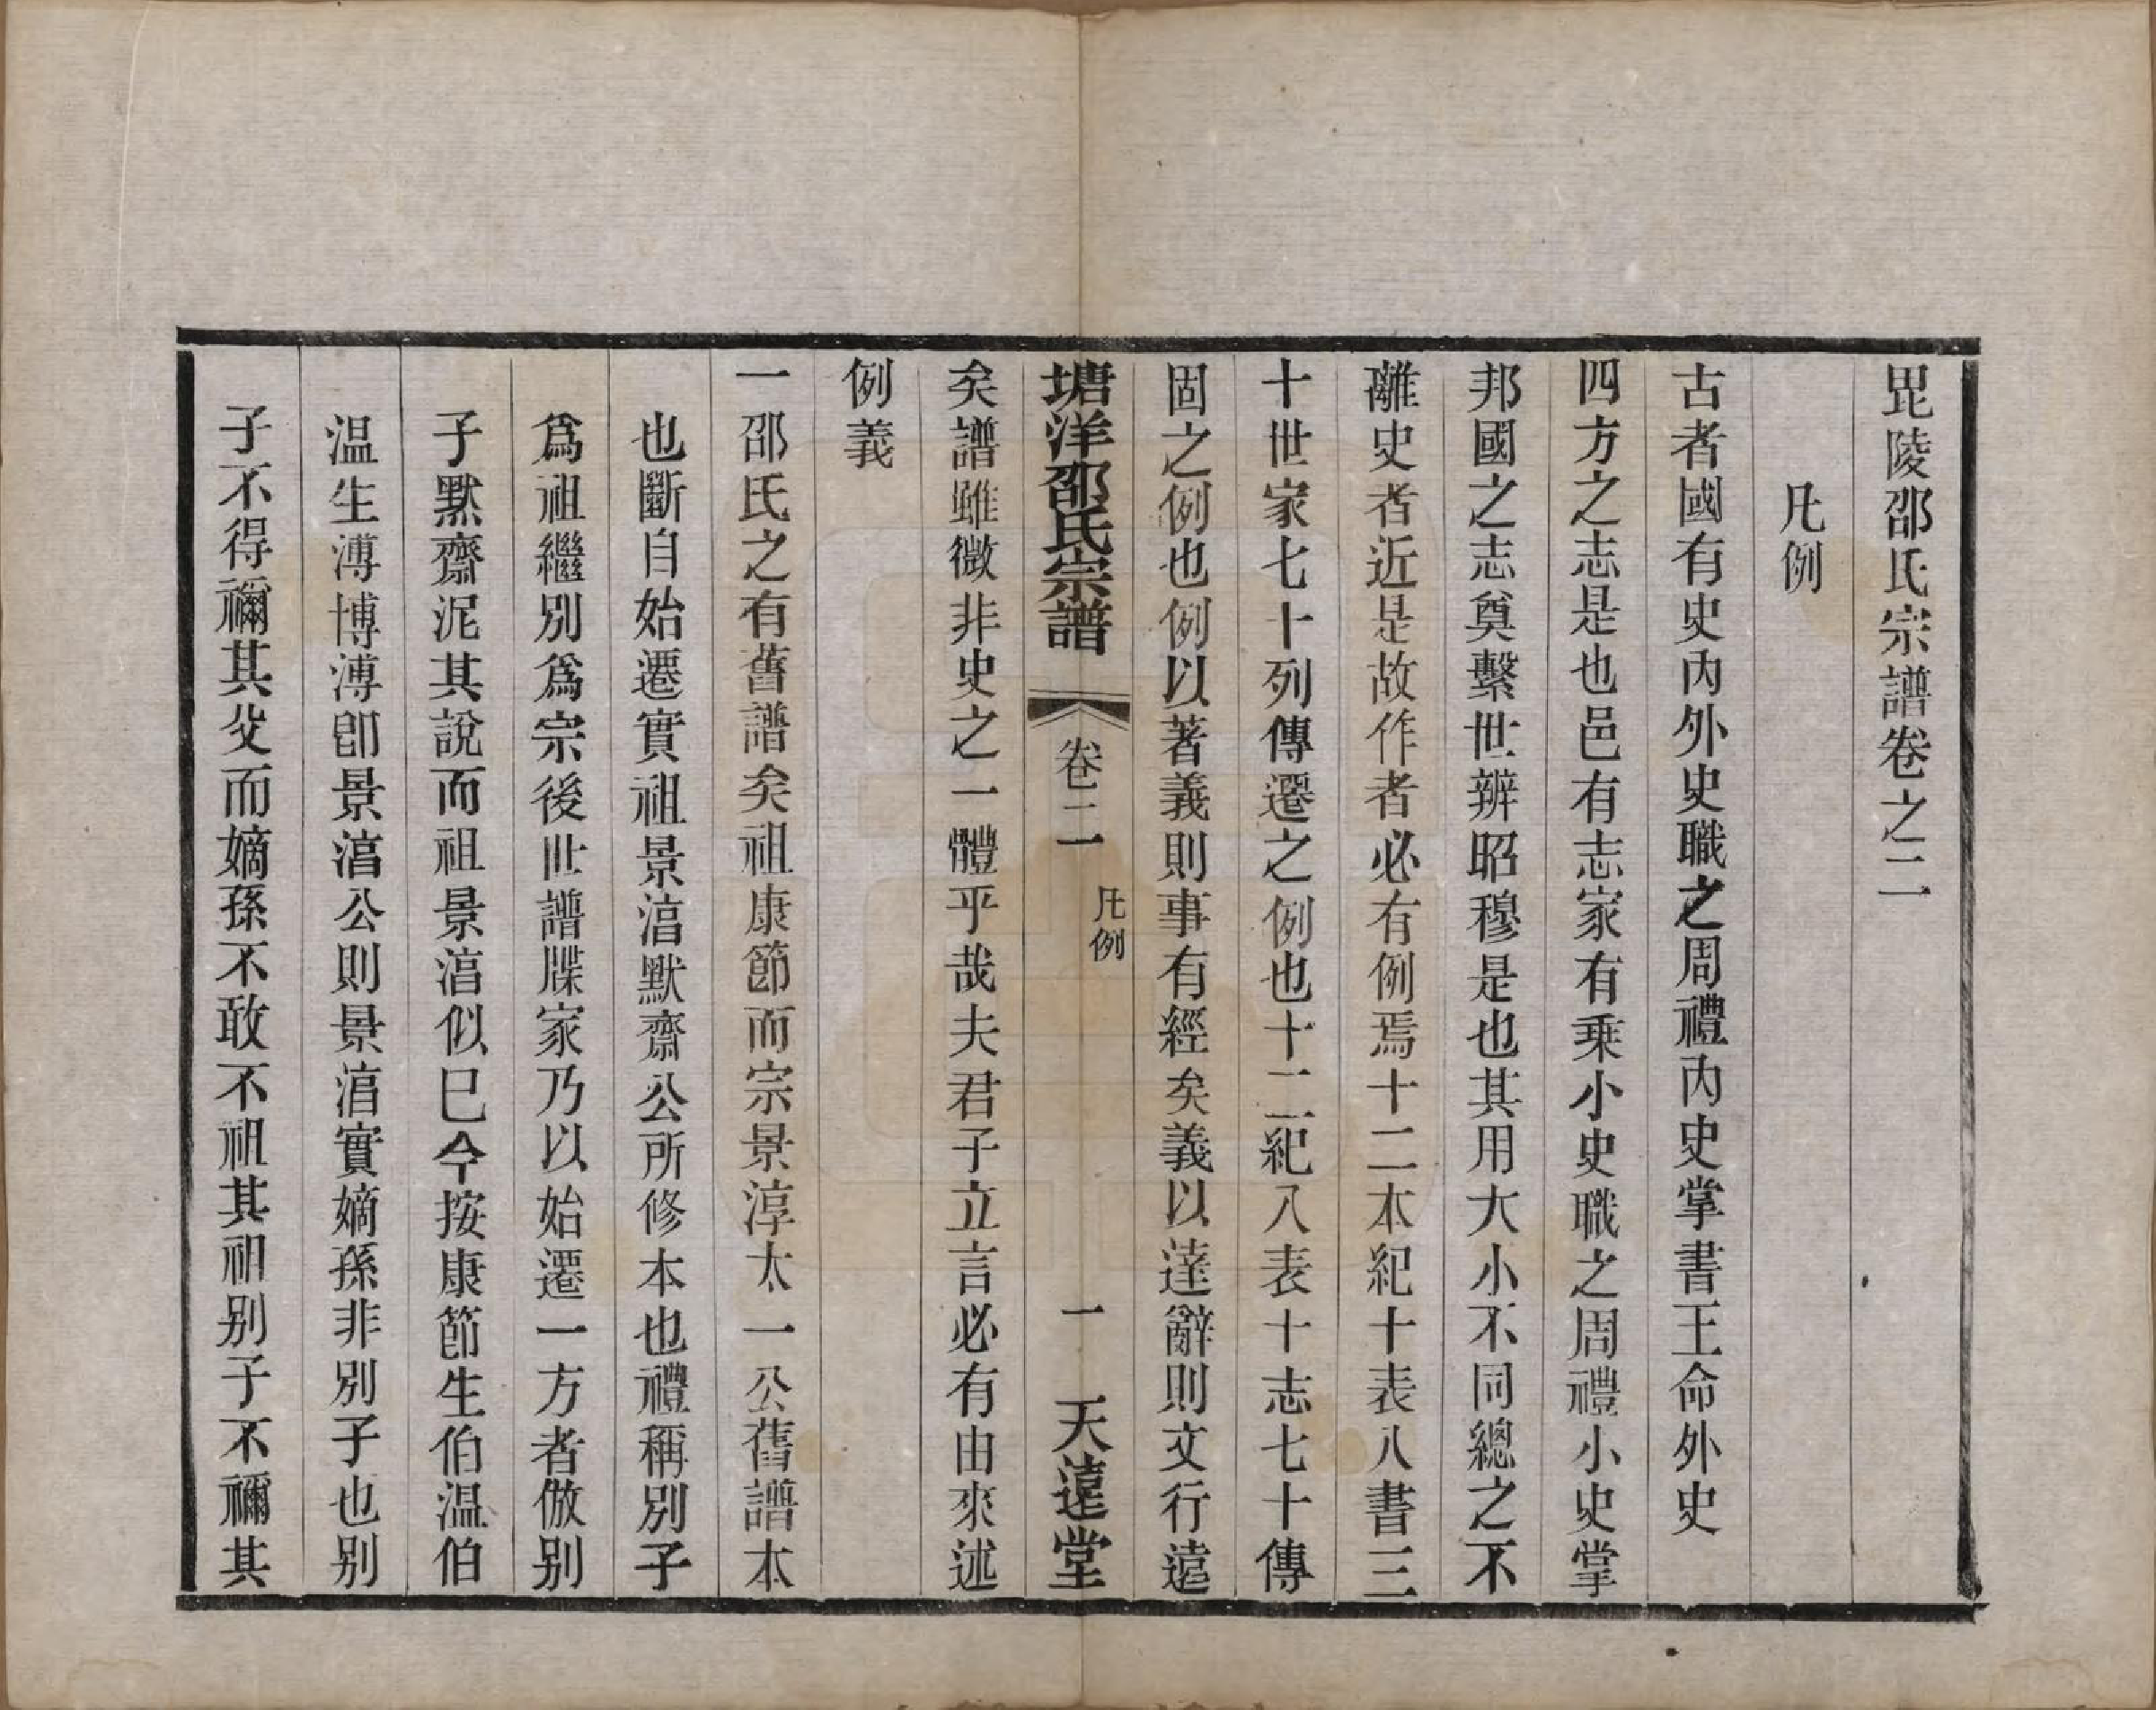 毘陵邵氏宗譜卷之二
凡例
古者國有史內外史職之周禮內史掌書王命外史
四方之志是也邑有志家有乗小史職之周禮小史掌
邦國之志奠繫世辨昭穆是也其用大小不同總之不
離史者近是故作者必有例焉十二本紀十表八書三
十世家七十列傳遷之例也十二紀八表十志七十傳
固之例也例以著義則事有經矣義以達辭則文行遠
塘洋邵氏宗譜
卷二
凡例
一
天遠堂
矣譜雖微非史之一體乎哉夫君子立言必有由來述
例義
一邵氏之有舊譜矣祖康節而宗景淳太一公舊譜本
也斷自始遷實祖景淯默齋公所修本也禮稱別子
爲祖繼別爲宗後世譜牒家乃以始遷一方者倣别
子默齋泥其說而祖景淯似巳今按康節生伯温伯
温生溥博溥卽景淯公則景淯實嫡孫非別子也别
子不得禰其父而嫡孫不敢不祖其祖别子不禰其